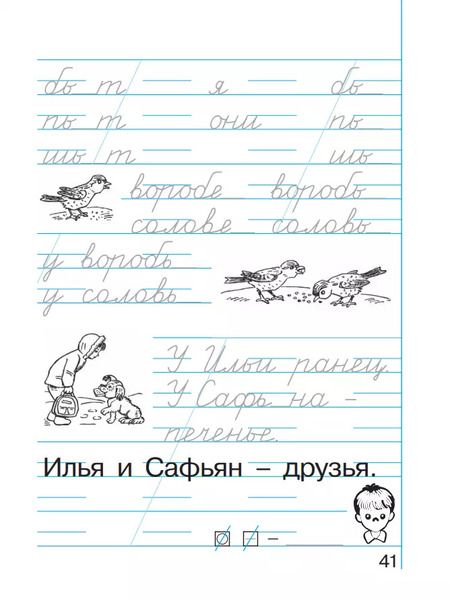 бь т я бь
пь т они пь
шь т шь
воробе воробь
солове соловь
у воробь
у соловь
У Ильи ранец.
У Сафь на –
печенье.
Илья и Сафьян – друзья.
–
41